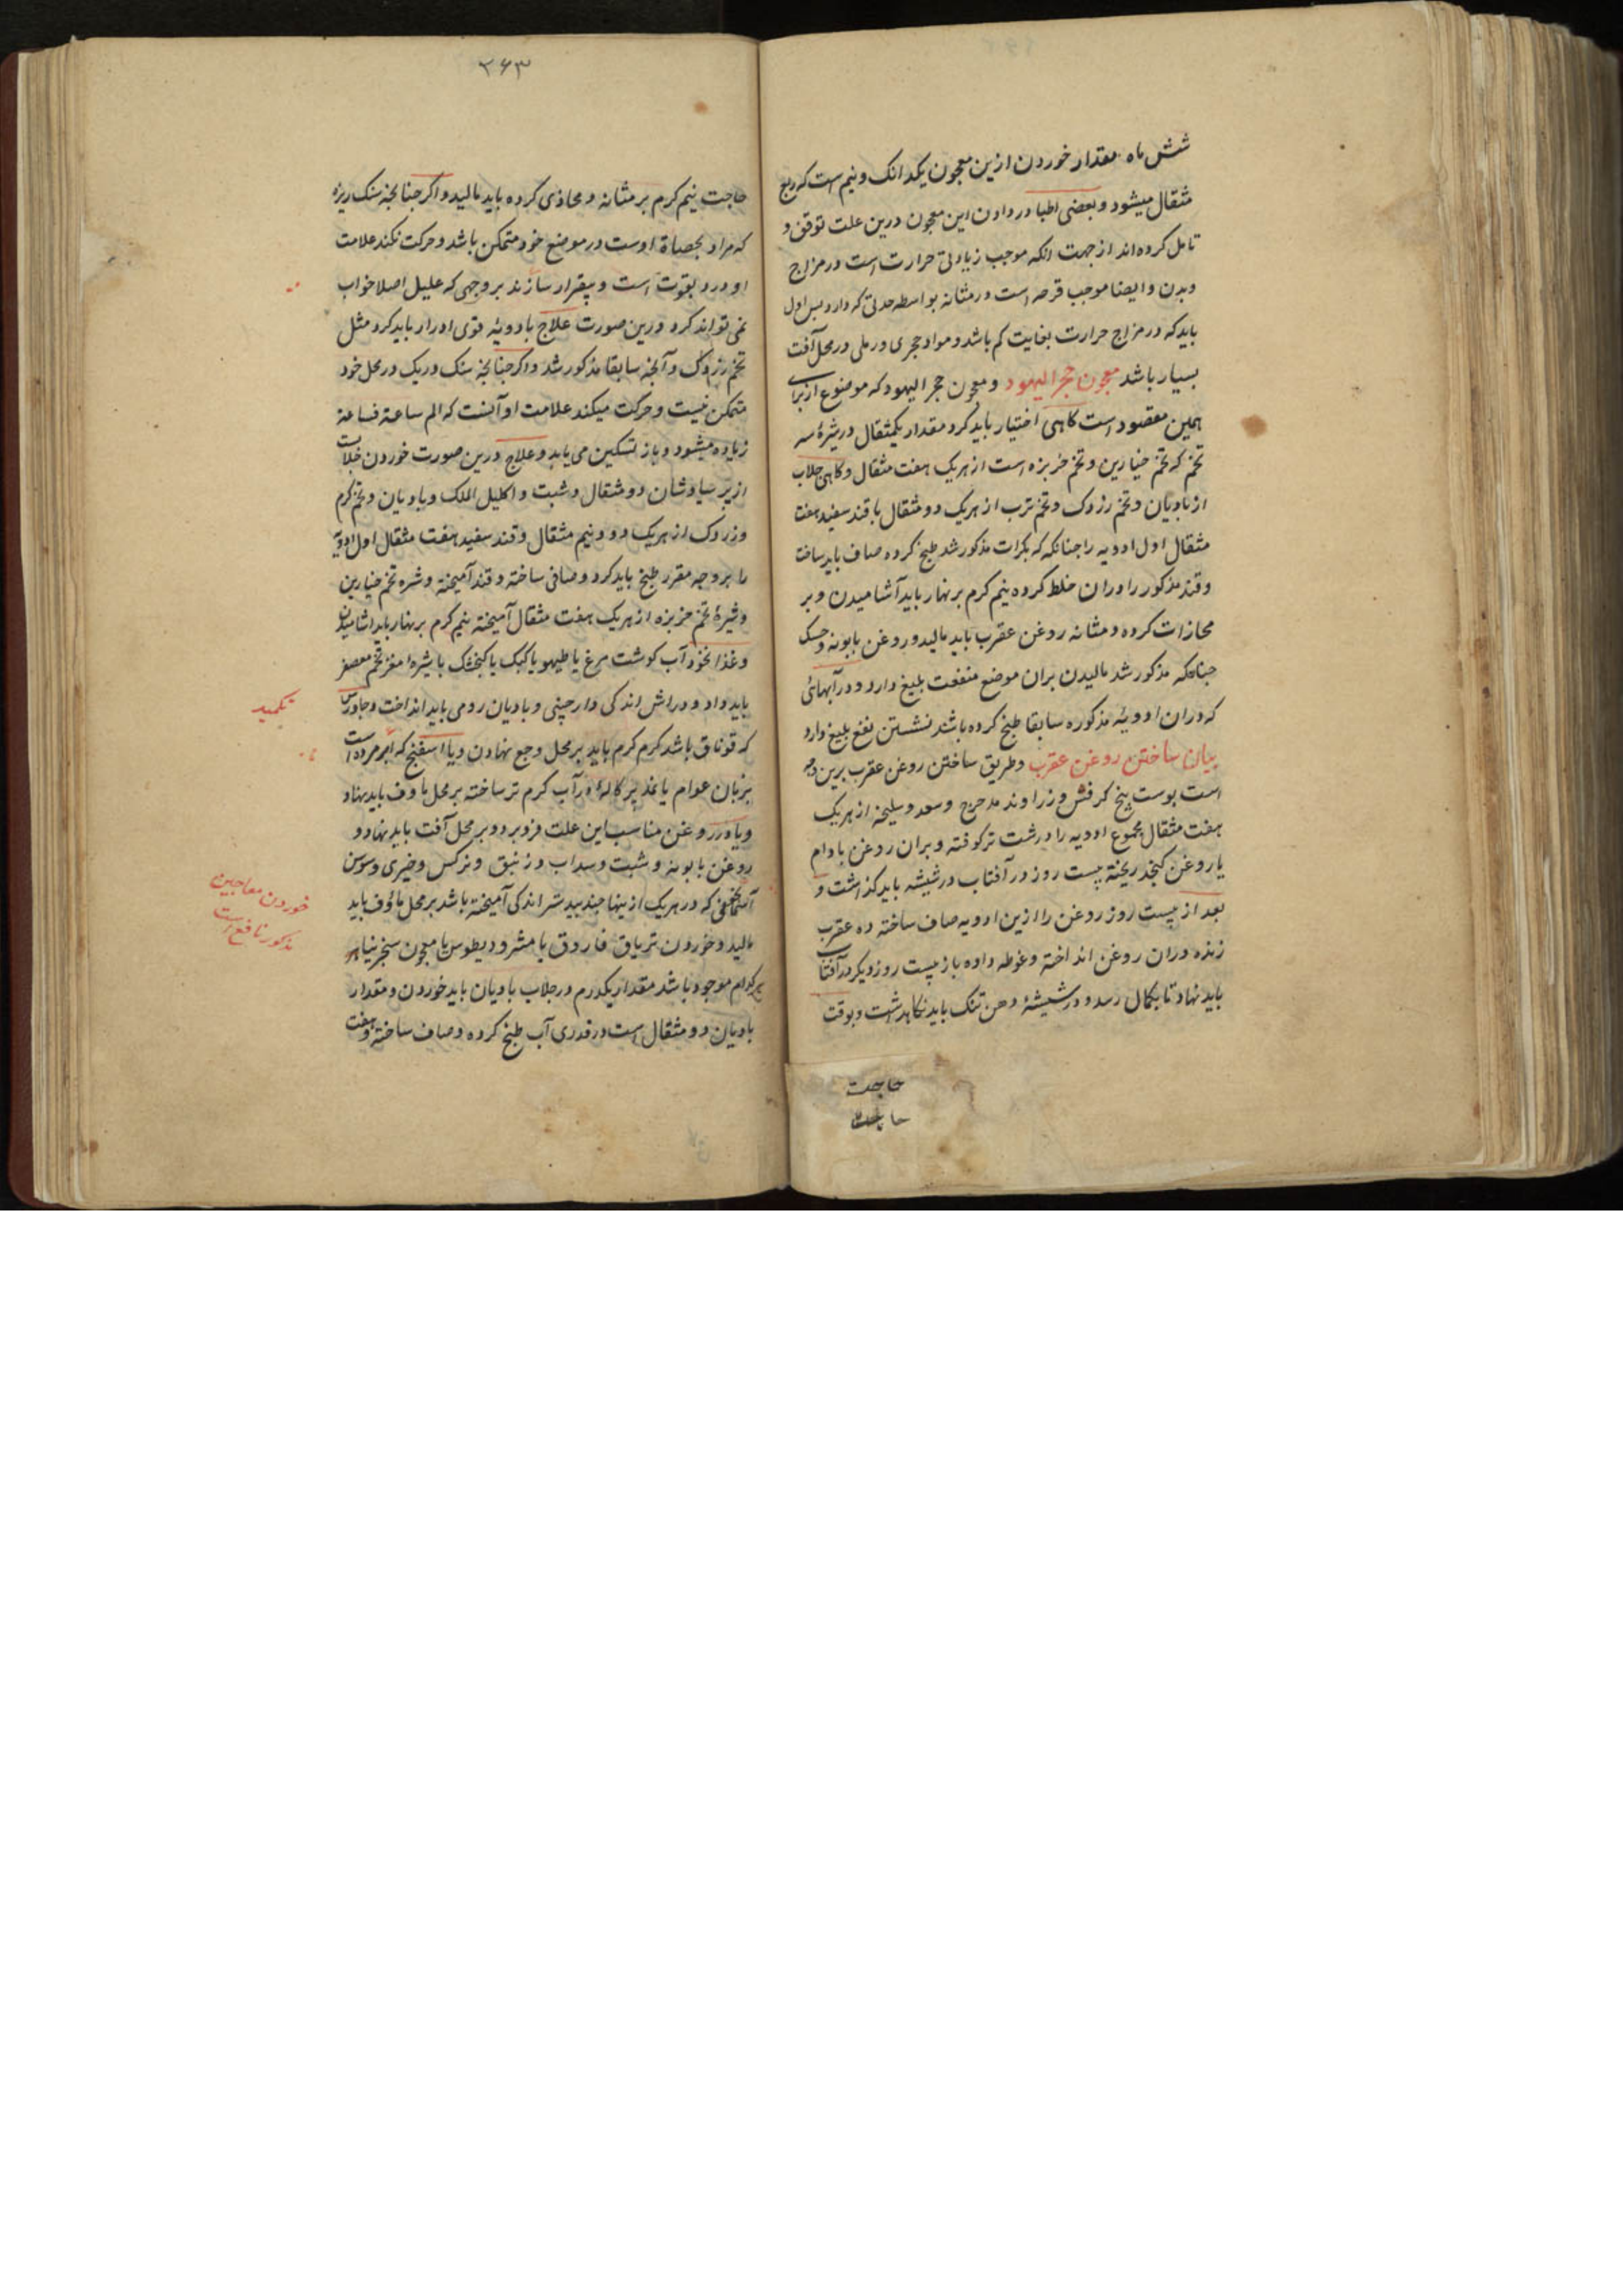 شش ماه مقدار خوردن ازین معجون یکدانک و نیم است که ربع
مثقال میشود و بعضی اطبا در دادن این معجون درین علت توقف و
تامل کرده‌اند از جهت انکه موجب زیادتی حرارت است در مزاج
و بدن و ایضا موجب قرحه است در مثانه بواسطه حدتی که دارد بس اول
باید که در مزاج حرارت بغایت کم باشد و مواد حجری و رملی در محل آفت
بسیار باشد معجون حجر الیهود و معجون حجر الیهود که موضوع از برای
همین مقصود است کاهی اختیار باید کرد مقدار یکمثقال در شیرهٔ سه
تخم که تخم خیارین و تخم خربزه است از هریک هفت مثقال و کاهی جلاب
از بادیان و تخم رزدک و تخم ترب از هریک دو مثقال با قند سفید هفت
مثقال اول ادویه را جنانکه که بکرات مذکور شد طبخ کرده صاف باید ساخت
و قند مذکور را دران خلط کرده نیم کرم بر نهار باید آشامیدن و بر
محازات کرده و مثانه روغن عقرب باید مالید و روغن بابونه و خسک
جنانکه مذکور شد مالیدن بران موضع منفعت بلیغ دارد و در آبهائی
که دران ادویهٔ مذکوره سابقا طبخ کرده باشند نشستن نفع بلیغ دارد
بیان ساختن روغن عقرب و طریق ساختن روغن عقرب برین وجه
است پوست بیخ کرفس و زراوند مدحرج و سعد و سلیخه از هریک
هفت مثقال مجموع ادویه را درشت تر کوفته و بران روغن بادام
یا روغن کنجد ریخته بیست روز در آفتاب در شیشه باید کذاشت و
بعد از بیست روز روغن را ازین ادویه صاف ساخته ده عقرب
زنده دران روغن انداخته و غوطه داده باز بیست روز دیکر در آفتاب
باید نهاد تا بکمال رسد و در شیشهٔ دهن تنک باید نکاهداشت و بوقت
حاجت
۲۶۳
حاجت نیم کرم بر مثانه و محاذی کرده باید مالید و اکر جنانجه سنک ریزه
که مراد بحصاة اوست در موضع خود متمکن باشد و حرکت نکند علامت
او درد بقوت است و بیقرار سازند بر وجهی که علیل اصلا خواب
نمی تواند کرد درین صورت علاج بادویهٔ قوی ادرار باید کرد مثل
تخم رزدک و آنجه سابقا مذکور شد و اکر جنانجه سنک و ریک در محل خود
متمکن نیست و حرکت میکند علامت او آنست که الم ساعة فساعة
زیاده میشود و باز تسکین می یابد و علاج درین صورت خوردن جلاب
از پر سیاوشان دو مثقال و شبت و اکلیل الملک و بادیان و تخم کرم
و زردک از هریک دو و نیم مثقال و قند سفید هفت مثقال اول ادویه
را بر وجه مقرر طبخ باید کرد و صافی ساخته و قند آمیخته و شره تخم خیارین
و شیرهٔ تخم خربزه از هریک هفت مثقال آمیخته نیم کرم بر نهار باید اشامیدن
و غذا نخود آب کوشت مرغ یا طیهو یا کبک یا کنجشک با شیرهٔ مغز تخم معصفر
باید داد و دراش اندکی دارجینی و بادیان رومی باید انداخت و جاورس
که قوناق باشد کرم کرم باید بر محل وجع نهادن و یا اسفنج که ابر مرده است
بزبان عوام یا نمد پرکالهٔ در آب کرم تر ساخته بر محل مأوف باید نهاد
و یا در روغن مناسب این علت فرو برد و بر محل آفت باید نهاد و
روغن بابونه و شبت و سداب و زنبق و نرکس و خیری و سوسن
آسمانجونی که در هریک از ینها جندبیدستر اندکی آمیخته باشد بر محل مأوف باید
مالید و خوردن تریاق فاروق یا مثرودیطوس یا معجون سنجرنیا هر
کدام موجود باشد مقدار یکدرم در جلاب بادیان باید خوردن و مقدار
بادیان دو مثقال است در قدری آب طبخ کرده و صاف ساخته و هفت
تکمید
خوردن معاجین
مذکور نافع است